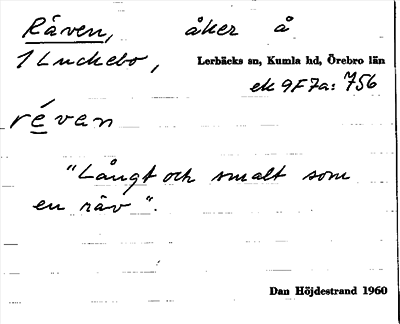 Räven, åker å
1 Luckebo, Lerbäcks sn, Kumla hd, Örebro län
ek 9F7a: 756
révan
"Långt och smalt som
en räv".
Dan Höjdestrand 1960